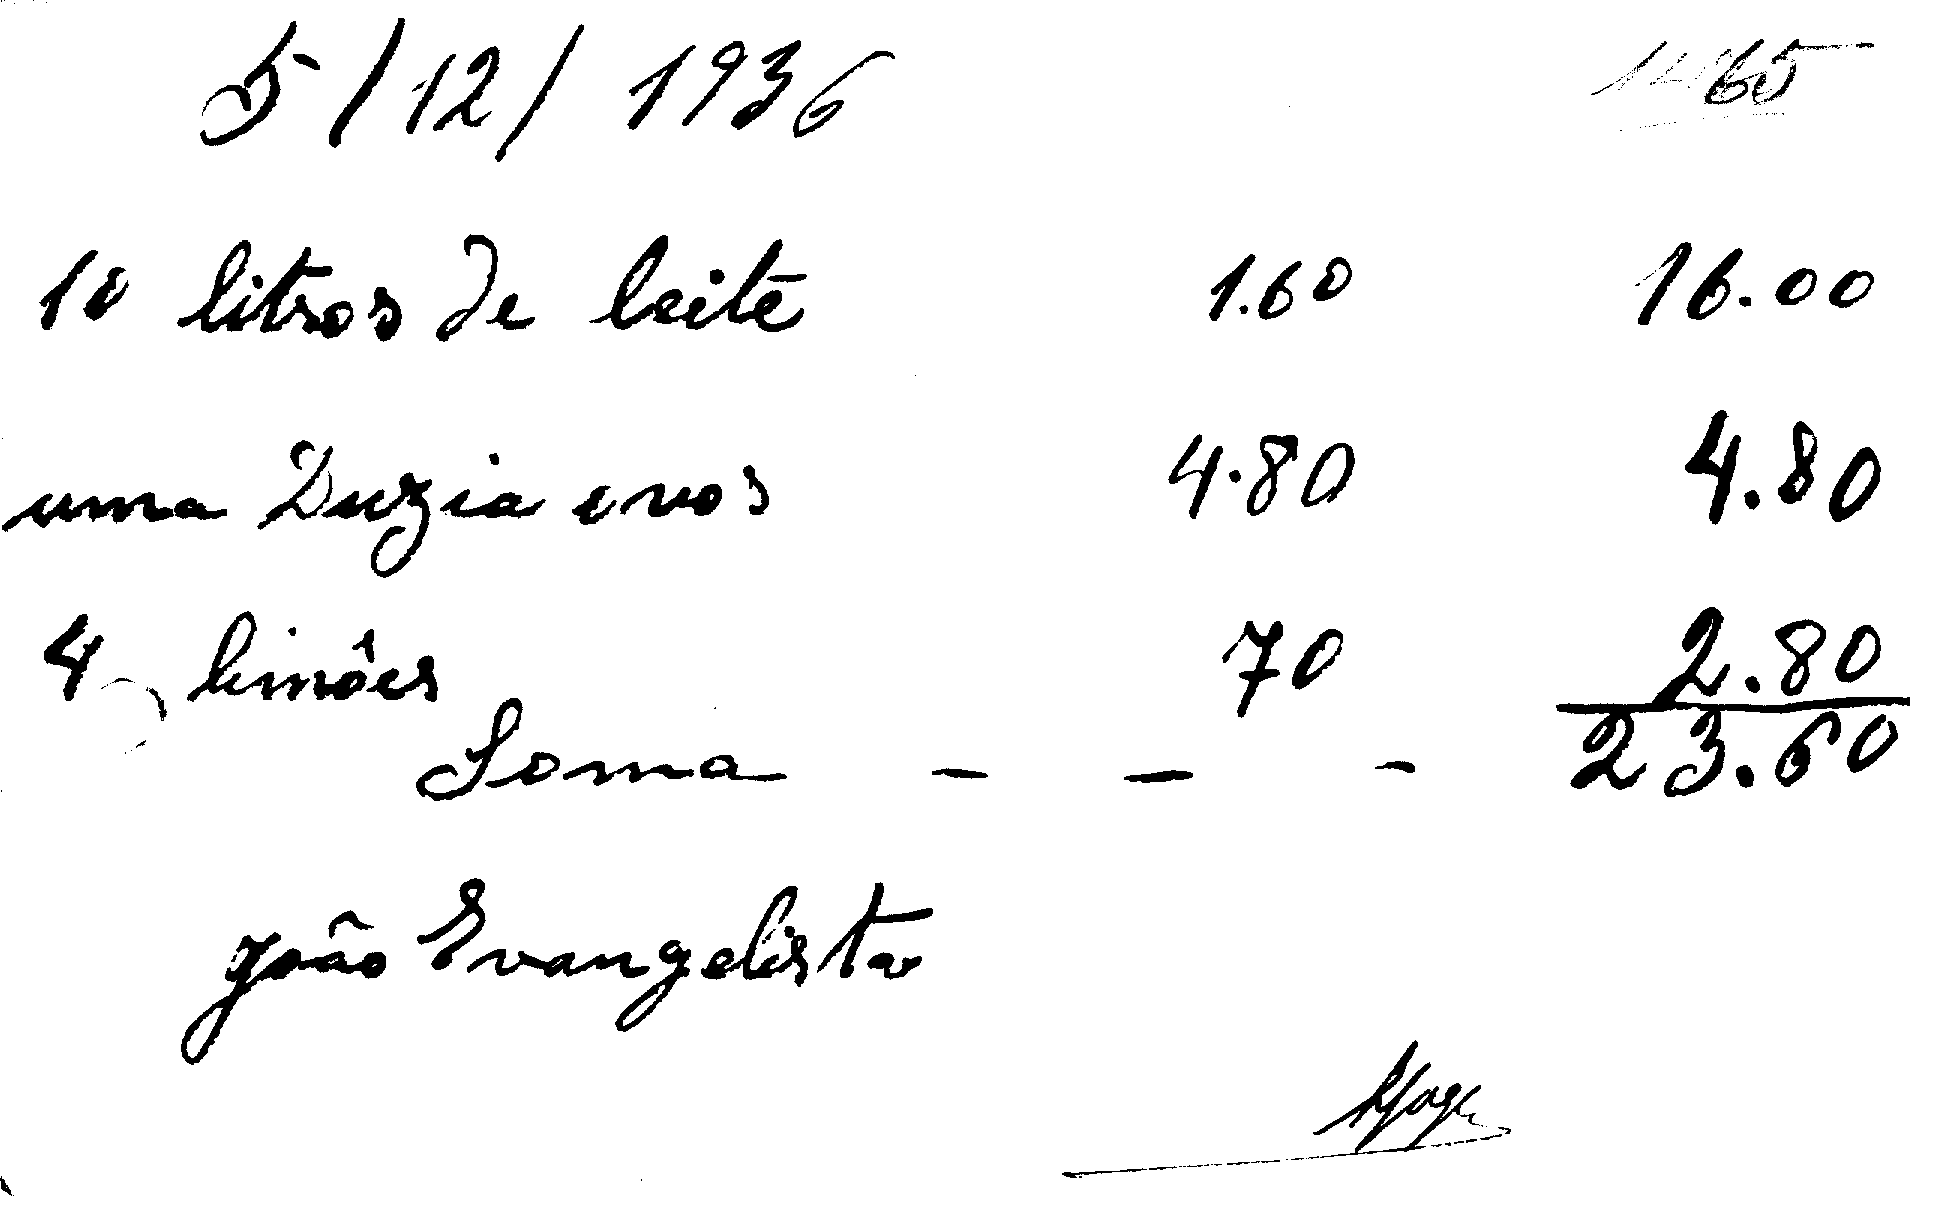 5/12/1936
10 litros de leite 1.60 16.00
uma Duzia ovos 4.80 4.80
4 limões 70 2.80
Soma - - - 23.60
João Evangelista